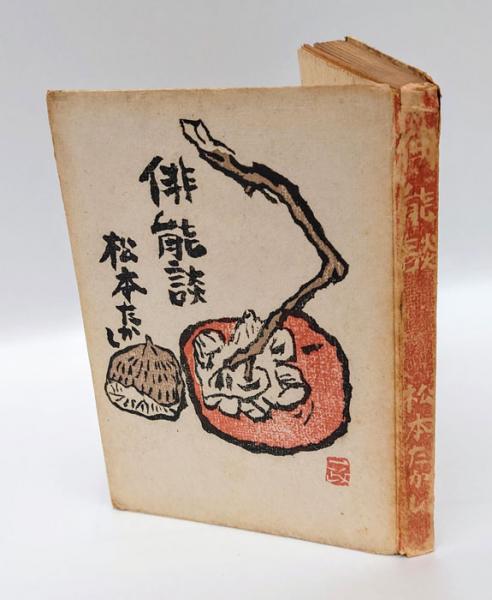 俳能談
松本たかし
俳能談
松本たかし